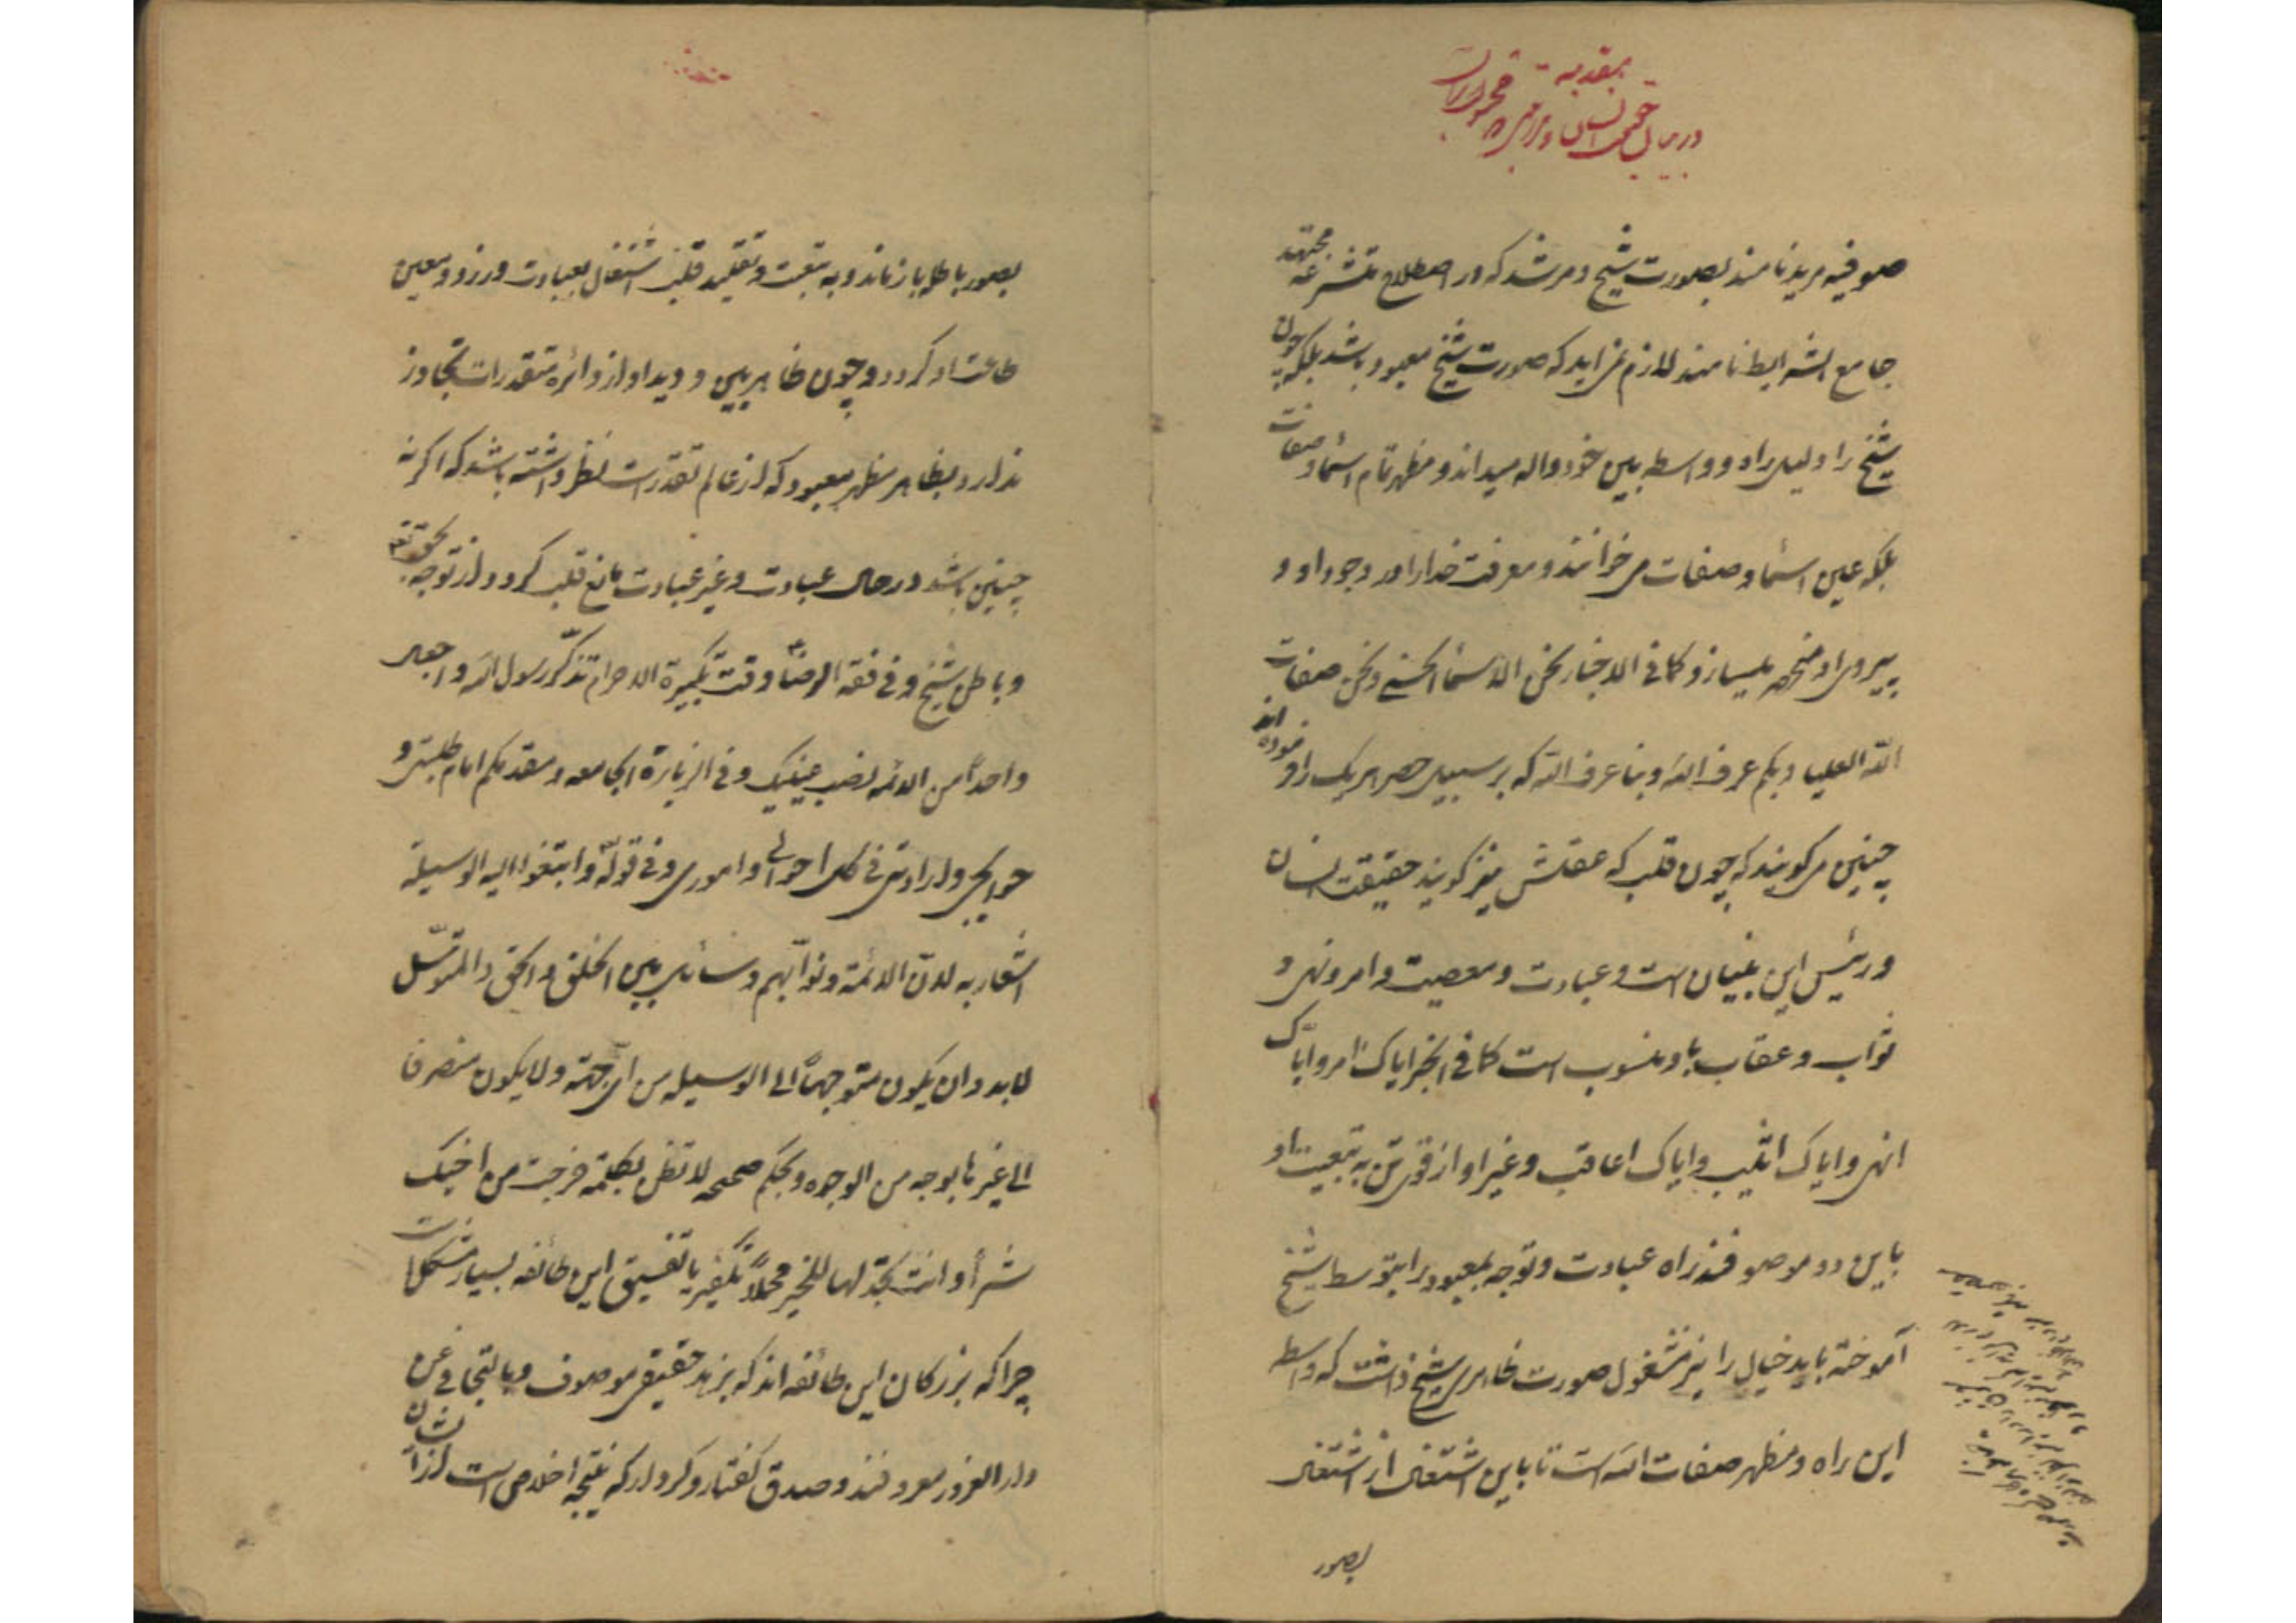 مقدمه
در بیان
صوفیه مرید نامند بصورت شیخ و مرشد که در اصطلاح متشرعه مجتهد
جامع الشرایط نامند لازم نمی‌اید که صورت شیخ معبود باشد بلکه چون
شیخ را دلیل راه و واسطه بین خود و اله میداند و مظهر تمام اسماء و صفات
بلکه عین اسماء و صفات میخوانند و معرفت خدا را در وجود او و
پیروی او منحصر میسازند کما فی الاخبار نحن الاسماء الحسنی و نحن صفات
الله العلیا و بکم عرف الله و بنا عرف الله که بر سبیل حصر هریک را فرموده اند
چنین میگویند که چون قلب که عقلش نیز گویند حقیقت انسان
و رئیس این بنیان است و عبادت و معصیت و امر و نهی و
ثواب و عقاب باو منسوب است کما فی الخبر ایاک امر و ایاک
انهی و ایاک اثیب و ایاک اعاقب و غیر او از قوی تن به تبعیت او
باین دو موصوفند راه عبادت و توجه بمعبود را بتوسط شیخ
آموخته باید خیال را نیز مشغول صورت ظاهری شیخ داشت که واسطه
این راه و مظهر صفات اله است تا باین اشتغال از اشتغال
بصور
بصور باطله باز ماند و به تبعیت و تقلید قلب اشتغال بعبادت ورزد و معین
طاعت او گردد و چون ظاهر بین و دید او از دائره متقدرات تجاوز
ندارد بظاهر مظهر معبود که از عالم تقدرات نظر داشته باشد که اگر نه
چنین باشد در حال عبادت و غیر عبادت مانع قلب گردد از توجه بحق
و باطن شیخ و فی فقه الرضا وقت تکبیرة الاحرام تذکر رسول الله و اجعل
واحداً من الائمه نصب عینیک و فی الزیارة الجامعه و مقدمکم امام طلبتی و
حوایجی و ارادتی فی کل احوالی و اموری و فی قوله وابتغوا الیه الوسیلة
اشعار به لان الائمة و نوابهم وسائل بین الخلق و الحق و المتوسل
لابد و ان یکون متوجهاً الی الوسیله من ای جهة و لایکون منصرفا
الی غیرها بوجه من الوجوه و بحکم صحیحه لاتظن بکلمة خرجت من اخیک
شراً و انت تجد لها للخیر محملاً تکفیر یا تفسیق این طائفه بسیار مشکل است
چرا که بزرگان این طائفه اند که بزهد حقیقی موصوف و بالتجافی عن
دار الغرور معروفند و صدق گفتار و کردار که نتیجه اخلاص است از ایشان